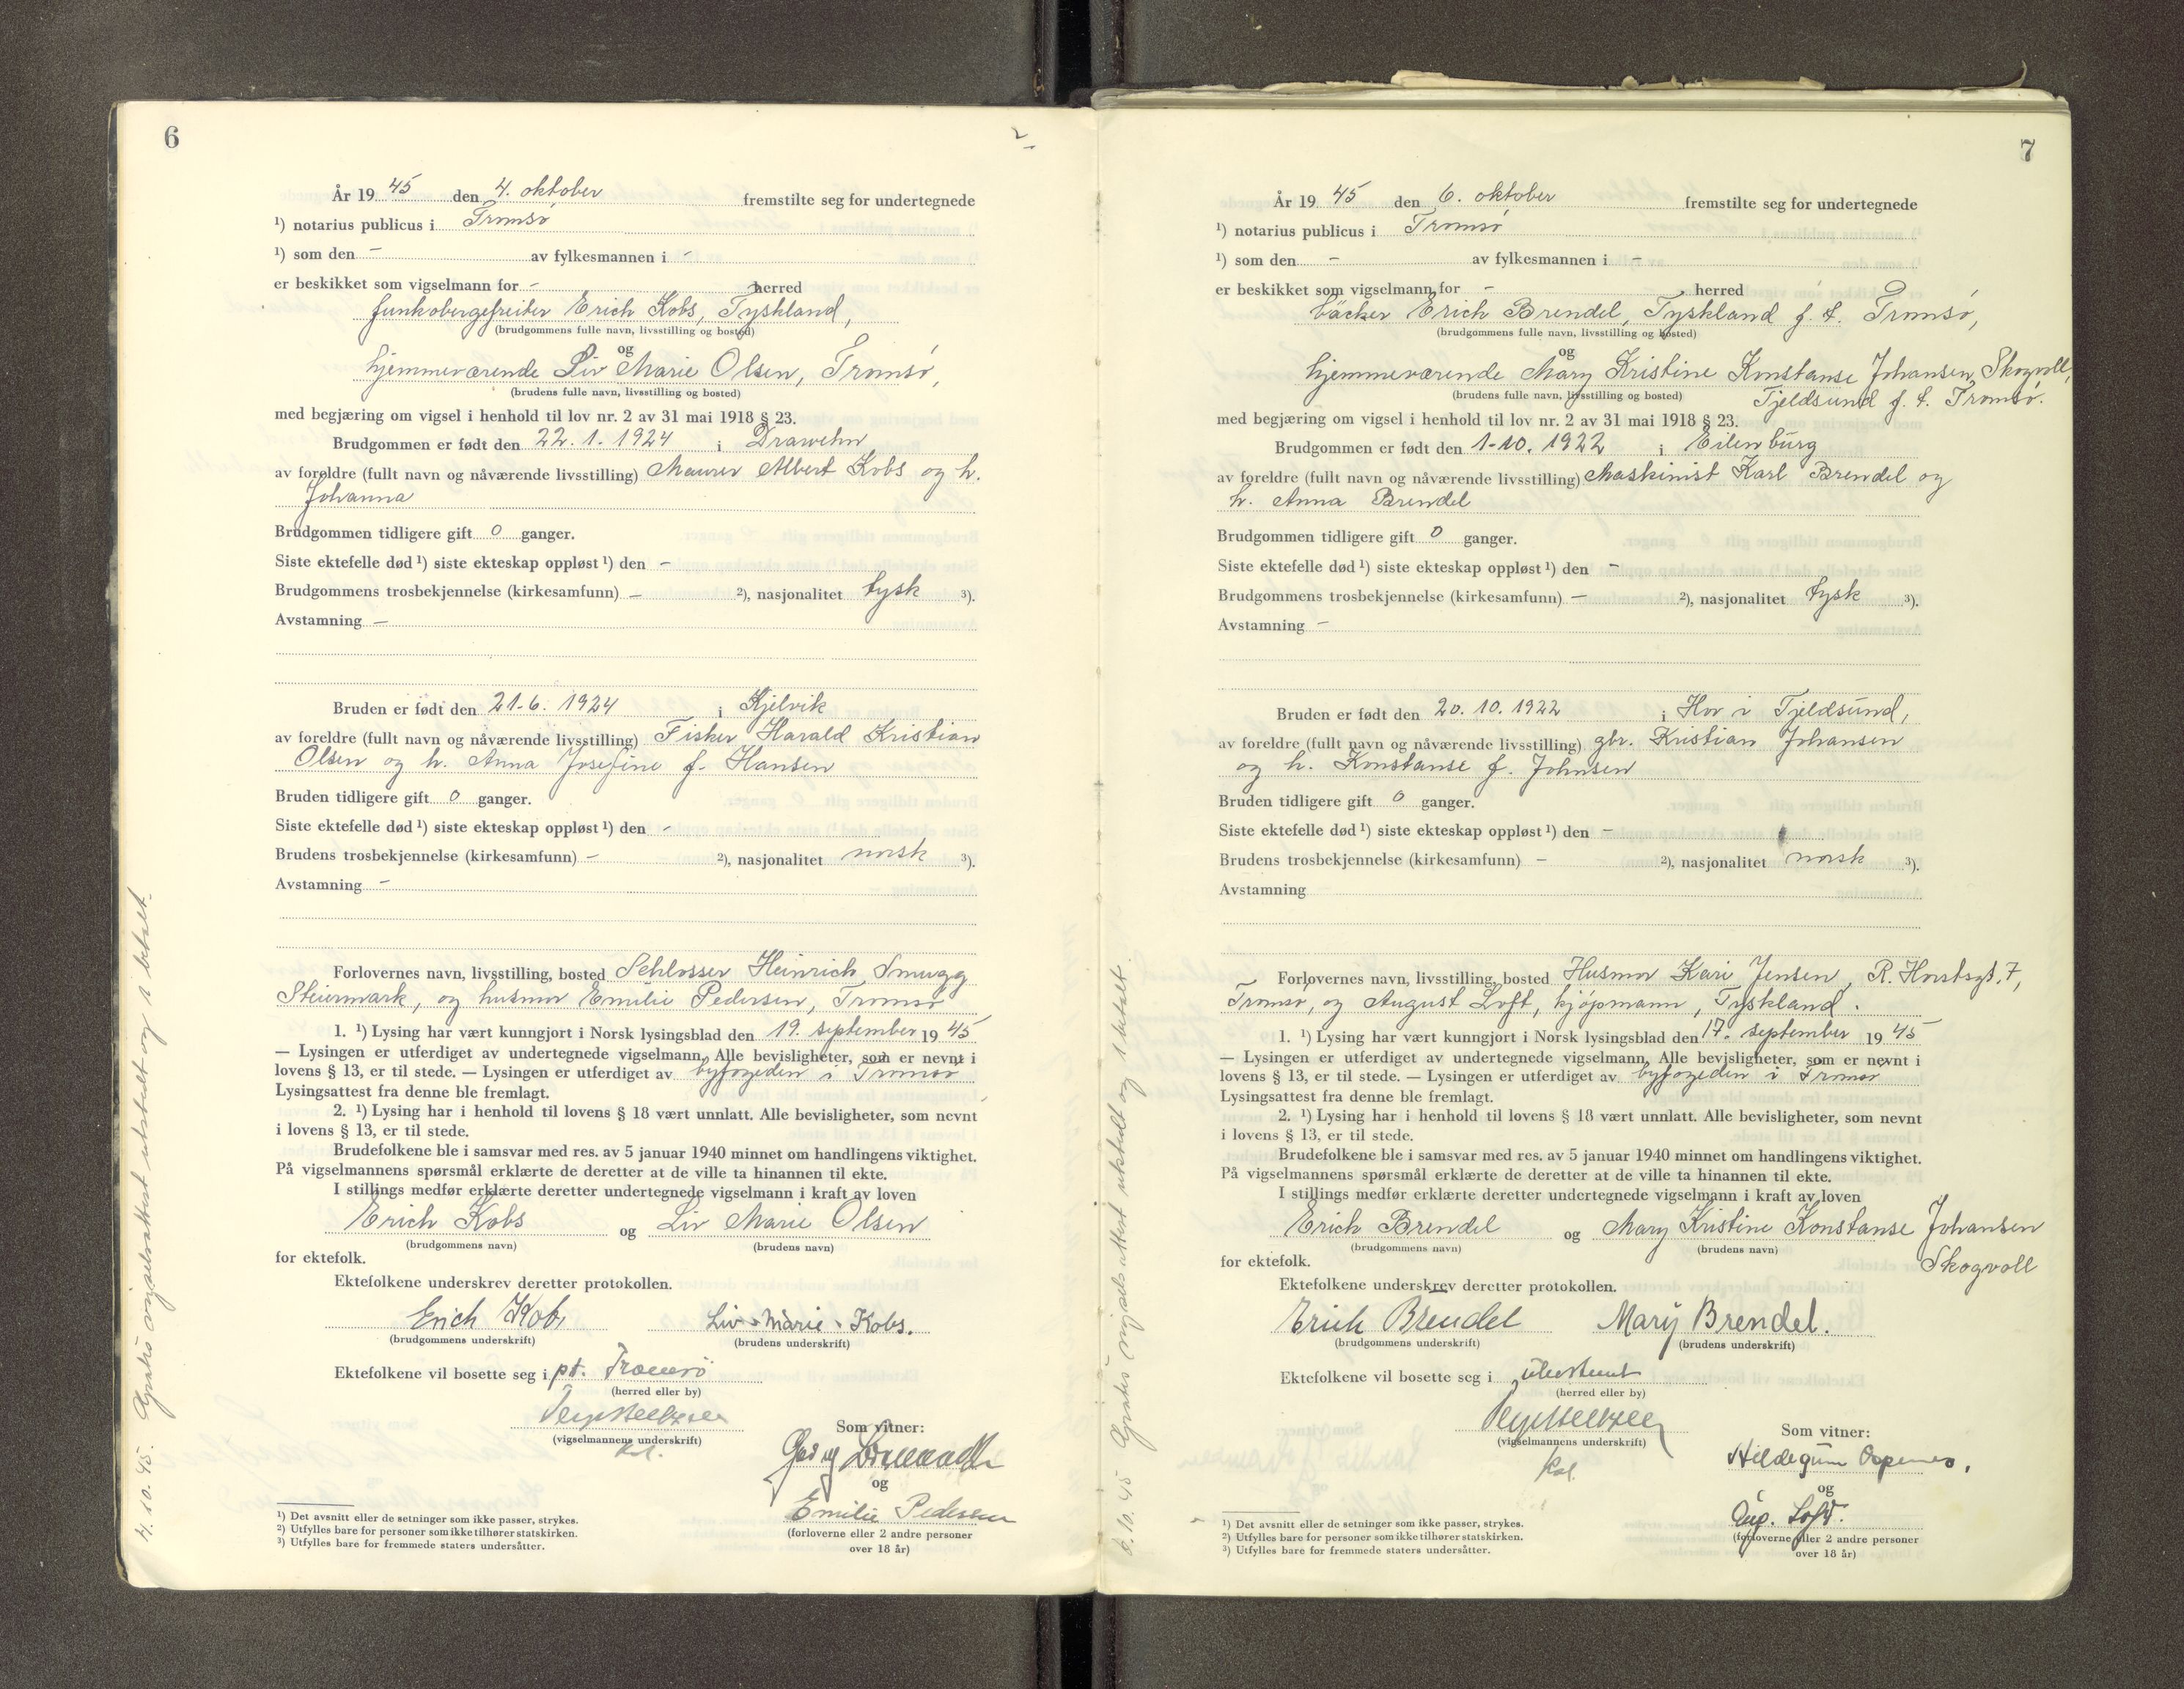 6
År 19 45 den 4. oktober fremstilte seg for undertegnede
¹) notarius publicus i Tromsø
¹) som den – av fylkesmannen i –
er beskikket som vigselmann for – herred
funkobergefreiter Erich Kobs, Tyskland,
(brudgommens fulle navn, livsstilling og bosted)
og
hjemmeværende Liv Marie Olsen, Tromsø,
(brudens fulle navn, livsstilling og bosted)
med begjæring om vigsel i henhold til lov nr. 2 av 31 mai 1918 § 23.
Brudgommen er født den 22. 1. 1924 i Drawehn
av foreldre (fullt navn og nåværende livsstilling) Maurer Albert Kobs og h.
Johanna
Brudgommen tidligere gift 0 ganger.
Siste ektefelle død ¹) siste ekteskap oppløst ¹) den –
Brudgommens trosbekjennelse (kirkesamfunn) – ²), nasjonalitet tysk ³).
Avstamning –
Bruden er født den 21. 6. 1924 i Kjelvik
av foreldre (fullt navn og nåværende livsstilling) Fisker Harald Kristian
Olsen og h. Anna Josefine f. Hansen
Bruden tidligere gift 0 ganger.
Siste ektefelle død ¹) siste ekteskap oppløst ¹) den –
Brudens trosbekjennelse (kirkesamfunn) – ²), nasjonalitet norsk ³).
Avstamning –
Forlovernes navn, livsstilling, bosted Schlosser Heinrich Smugg
Steiermark, og husmor Emilie Pedersen, Tromsø
1. ¹) Lysing har vært kunngjort i Norsk lysingsblad den 19. september 19 45
— Lysingen er utferdiget av undertegnede vigselmann, Alle bevisligheter, som er nevnt i
lovens § 13, er til stede. — Lysingen er utferdiget av byfogeden i Tromsø
Lysingsattest fra denne ble fremlagt.
2. ¹) Lysing har i henhold til lovens § 18 vært unnlatt. Alle bevisligheter, som nevnt
i lovens § 13, er til stede.
Brudefolkene ble i samsvar med res. av 5 januar 1940 minnet om handlingens viktighet.
På vigselmannens spørsmål erklærte de deretter at de ville ta hinannen til ekte.
I stillings medfør erklærte deretter undertegnede vigselmann i kraft av loven
Erich Kobs og Liv Marie Olsen
(brudgommens navn) (brudens navn)
for ektefolk.
Ektefolkene underskrev deretter protokollen.
Erich Kobs Liv-Marie Kobs.
(brudgommens underskrift) (brudens underskrift)
Ektefolkene vil bosette seg i pt. Tromsø
(herred eller by)
Som vitner:
(vigselmannens underskrift)
og
Emilie Pedersen
(forloverne eller 2 andre personer
over 18 år)
¹) Det avsnitt eller de setninger som ikke passer, strykes.
²) Utfylles bare for personer som ikke tilhører statskirken.
³) Utfylles bare for fremmede staters undersåtter.
4. 10. 45. Gratis vigselsattest utstedt og 1 betalt.
7
År 19 45 den 6. oktober fremstilte seg for undertegnede
¹) notarius publicus i Tromsø
¹) som den – av fylkesmannen i –
er beskikket som vigselmann for – herred
bäcker Erich Brendel, Tyskland f. t. Tromsø,
(brudgommens fulle navn, livsstilling og bosted)
og
hjemmeværende Mary Kristine Konstanse Johansen Skogvoll,
(brudens fulle navn, livsstilling og bosted) Tjeldsund f. t. Tromsø.
med begjæring om vigsel i henhold til lov nr. 2 av 31 mai 1918 § 23.
Brudgommen er født den 1. 10. 1922 i Eilenburg
av foreldre (fullt navn og nåværende livsstilling) Maskinist Karl Brendel og
h. Anna Brendel
Brudgommen tidligere gift 0 ganger.
Siste ektefelle død ¹) siste ekteskap oppløst ¹) den –
Brudgommens trosbekjennelse (kirkesamfunn) – ²), nasjonalitet tysk ³).
Avstamning –
Bruden er født den 20. 10. 1922 i Hov i Tjeldsund,
av foreldre (fullt navn og nåværende livsstilling) gbr. Kristian Johansen
og h. Konstanse f. Johnsen
Bruden tidligere gift 0 ganger.
Siste ektefelle død ¹) siste ekteskap oppløst ¹) den –
Brudens trosbekjennelse (kirkesamfunn) – ²), nasjonalitet norsk ³).
Avstamning
Forlovernes navn, livsstilling, bosted Husmor Kari Jensen, R. Horstsgt. 7,
Tromsø, og August Loft, kjøpmann, Tyskland.
1. ¹) Lysing har vært kunngjort i Norsk lysingsblad den 17. september 19 45
— Lysingen er utferdiget av undertegnede vigselmann, Alle bevisligheter, som er nevnt i
lovens § 13, er til stede. — Lysingen er utferdiget av byfogeden i Tromsø
Lysingsattest fra denne ble fremlagt.
2. ¹) Lysing har i henhold til lovens § 18 vært unnlatt. Alle bevisligheter, som nevnt
i lovens § 13, er til stede.
Brudefolkene ble i samsvar med res. av 5 januar 1940 minnet om handlingens viktighet.
På vigselmannens spørsmål erklærte de deretter at de ville ta hinannen til ekte.
I stillings medfør erklærte deretter undertegnede vigselmann i kraft av loven
Erich Brendel og Mary Kristine Konstanse Johansen
(brudgommens navn) (brudens navn)
for ektefolk. Skogvoll
Ektefolkene underskrev deretter protokollen.
Erich Brendel Mary Brendel.
(brudgommens underskrift) (brudens underskrift)
Ektefolkene vil bosette seg i ubestemt
(herred eller by)
Som vitner:
(vigselmannens underskrift)
Hildegun
og
Aug. Loft.
(forloverne eller 2 andre personer
over 18 år)
¹) Det avsnitt eller de setninger som ikke passer, strykes.
²) Utfylles bare for personer som ikke tilhører statskirken.
³) Utfylles bare for fremmede staters undersåtter.
6. 10. 45 Gratis vigselsattest utstedt og 1 betalt.